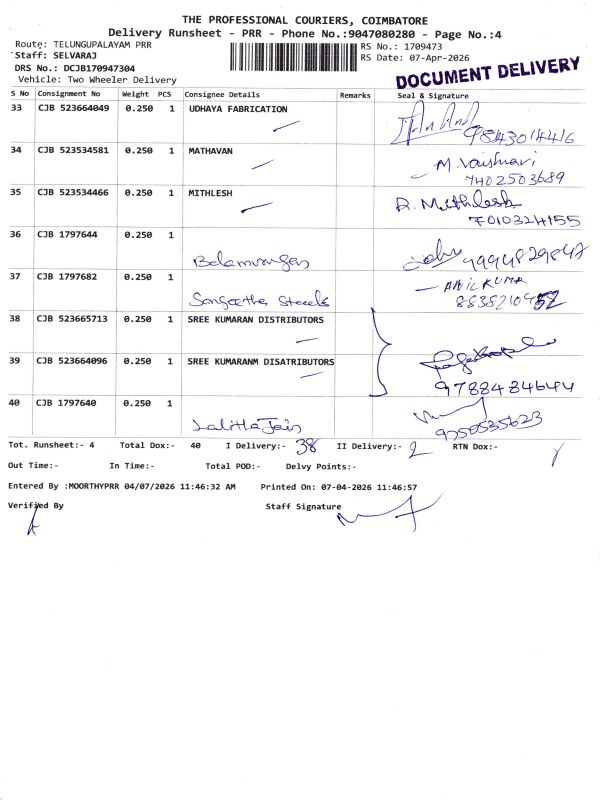 THE PROFESSIONAL COURIERS, COIMBATORE
Delivery Runsheet - PRR - Phone No.:9047080280 - Page No.:4
Route: TELUNGUPALAYAM PRR
RS No.: 1709473
Staff: SELVARAJ
RS Date: 07-Apr-2026
DRS No.: DCJB170947304
Vehicle: Two Wheeler Delivery
DOCUMENT DELIVERY
S No Consignment No Weight PCS Consignee Details Remarks Seal & Signature
33 CJB 523664049 0.250 1 UDHAYA FABRICATION
9843014416
34 CJB 523534581 0.250 1 MATHAVAN
M. Vaishnavi
7402503689
35 CJB 523534466 0.250 1 MITHLESH
R. Mithlesh
7010324155
36 CJB 1797644 0.250 1
Balamurugan 9994829847
37 CJB 1797682 0.250 1
ANILKUMA
Sangeetha Steels
38 CJB 523665713 0.250 1 SREE KUMARAN DISTRIBUTORS
39 CJB 523664096 0.250 1 SREE KUMARANM DISATRIBUTORS
9788434644
40 CJB 1797640 0.250 1
Lalitha Jain 9750535623
Tot. Runsheet:- 4 Total Dox:- 40 I Delivery:- 38 II Delivery:- 2 RTN Dox:-
Out Time:- In Time:- Total POD:- Delvy Points:-
Entered By :MOORTHYPRR 04/07/2026 11:46:32 AM Printed On: 07-04-2026 11:46:57
Verified By Staff Signature